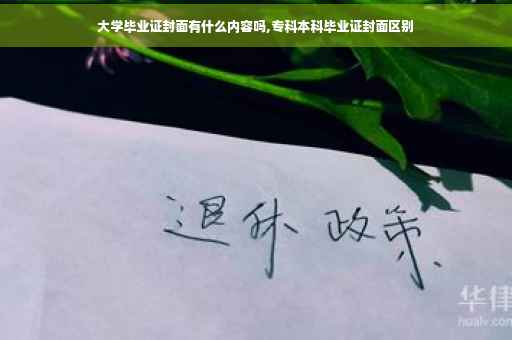 大学毕业证封面有什么内容吗,专科本科毕业证封面区别
退休 政策
华律
hualv.com